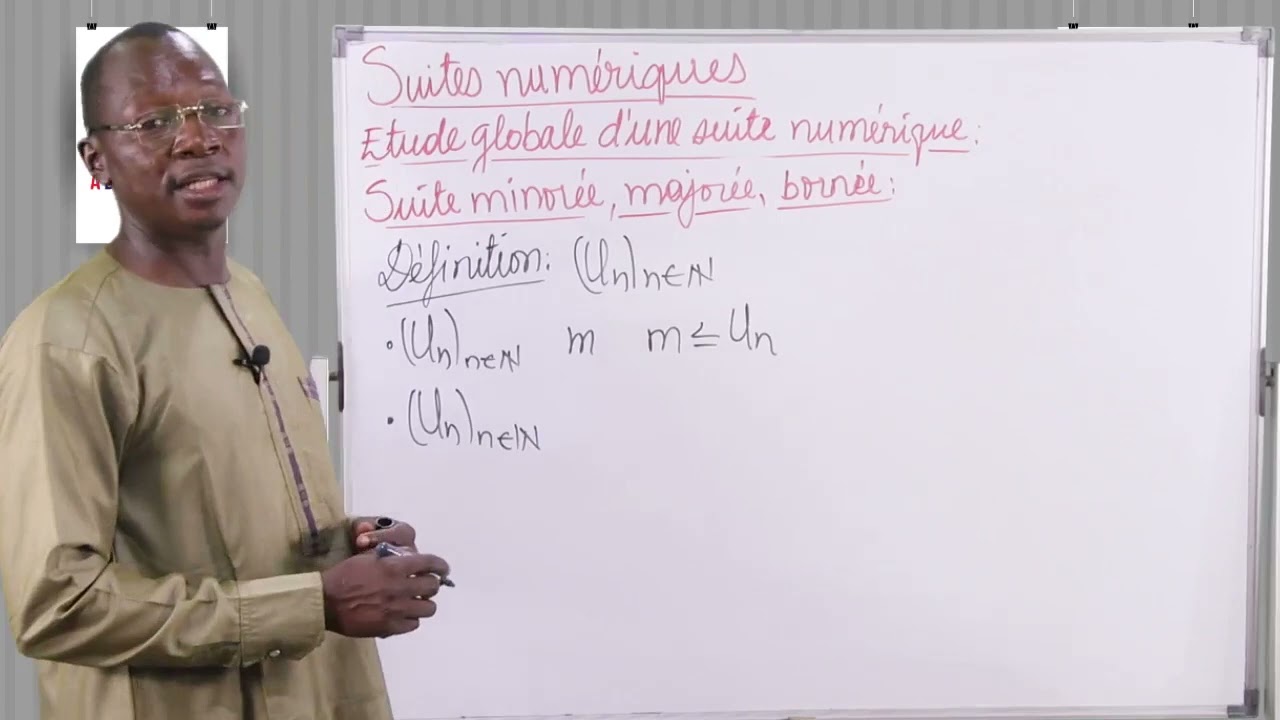 Suites numériques
Etude globale d'une suite numérique:
Suite minorée, majorée, bornée:
Définition: (Un)n∈ℕ
• (Un)n∈ℕ m m ≤ Un
• (Un)n∈ℕ